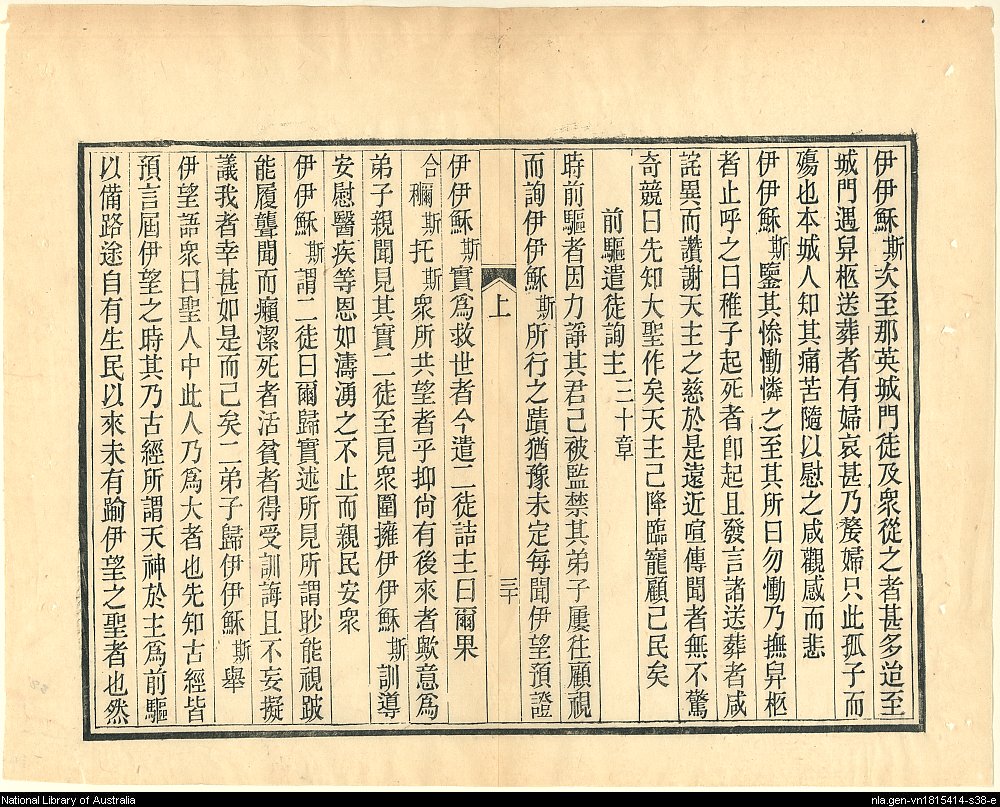 伊伊穌斯次至那英城門徒及衆從之者甚多迨至
城門遇舁柩送葬者有婦哀甚乃嫠婦只此孤子而
殤也本城人知其痛苦隨以慰之咸觀感而悲
伊伊穌斯鑒其慘慟憐之至其所曰勿慟乃撫舁柩
者止呼之曰稚子起死者卽起且發言諸送葬者咸
詫異而讚謝天主之慈於是遠近喧傳聞者無不驚
奇競曰先知大聖作矣天主己降臨寵顧己民矣
前驅遣徒詢主三十章
時前驅者因力諍其君己被監禁其弟子屢往顧視
而詢伊伊穌斯所行之蹟猶豫未定每聞伊望預證
上
三十
伊伊穌斯實爲救世者今遣二徒詰主曰爾果
合穪斯托斯衆所共望者乎抑尙有後來者歟意爲
弟子親聞見其實二徒至見衆圍擁伊伊穌斯訓導
安慰醫疾等恩如濤湧之不止而親民安衆
伊伊穌斯謂二徒曰爾歸實述所見所謂眇能視跛
能履聾聞而癩潔死者活貧者得受訓誨且不妄擬
議我者幸甚如是而己矣二弟子歸伊伊穌斯舉
伊望語衆曰聖人中此人乃爲大者也先知古經皆
預言屆伊望之時其乃古經所謂天神於主爲前驅
以備路途自有生民以來未有踰伊望之聖者也然
National Library of Australia
nla.gen-vn1815414-s38-e